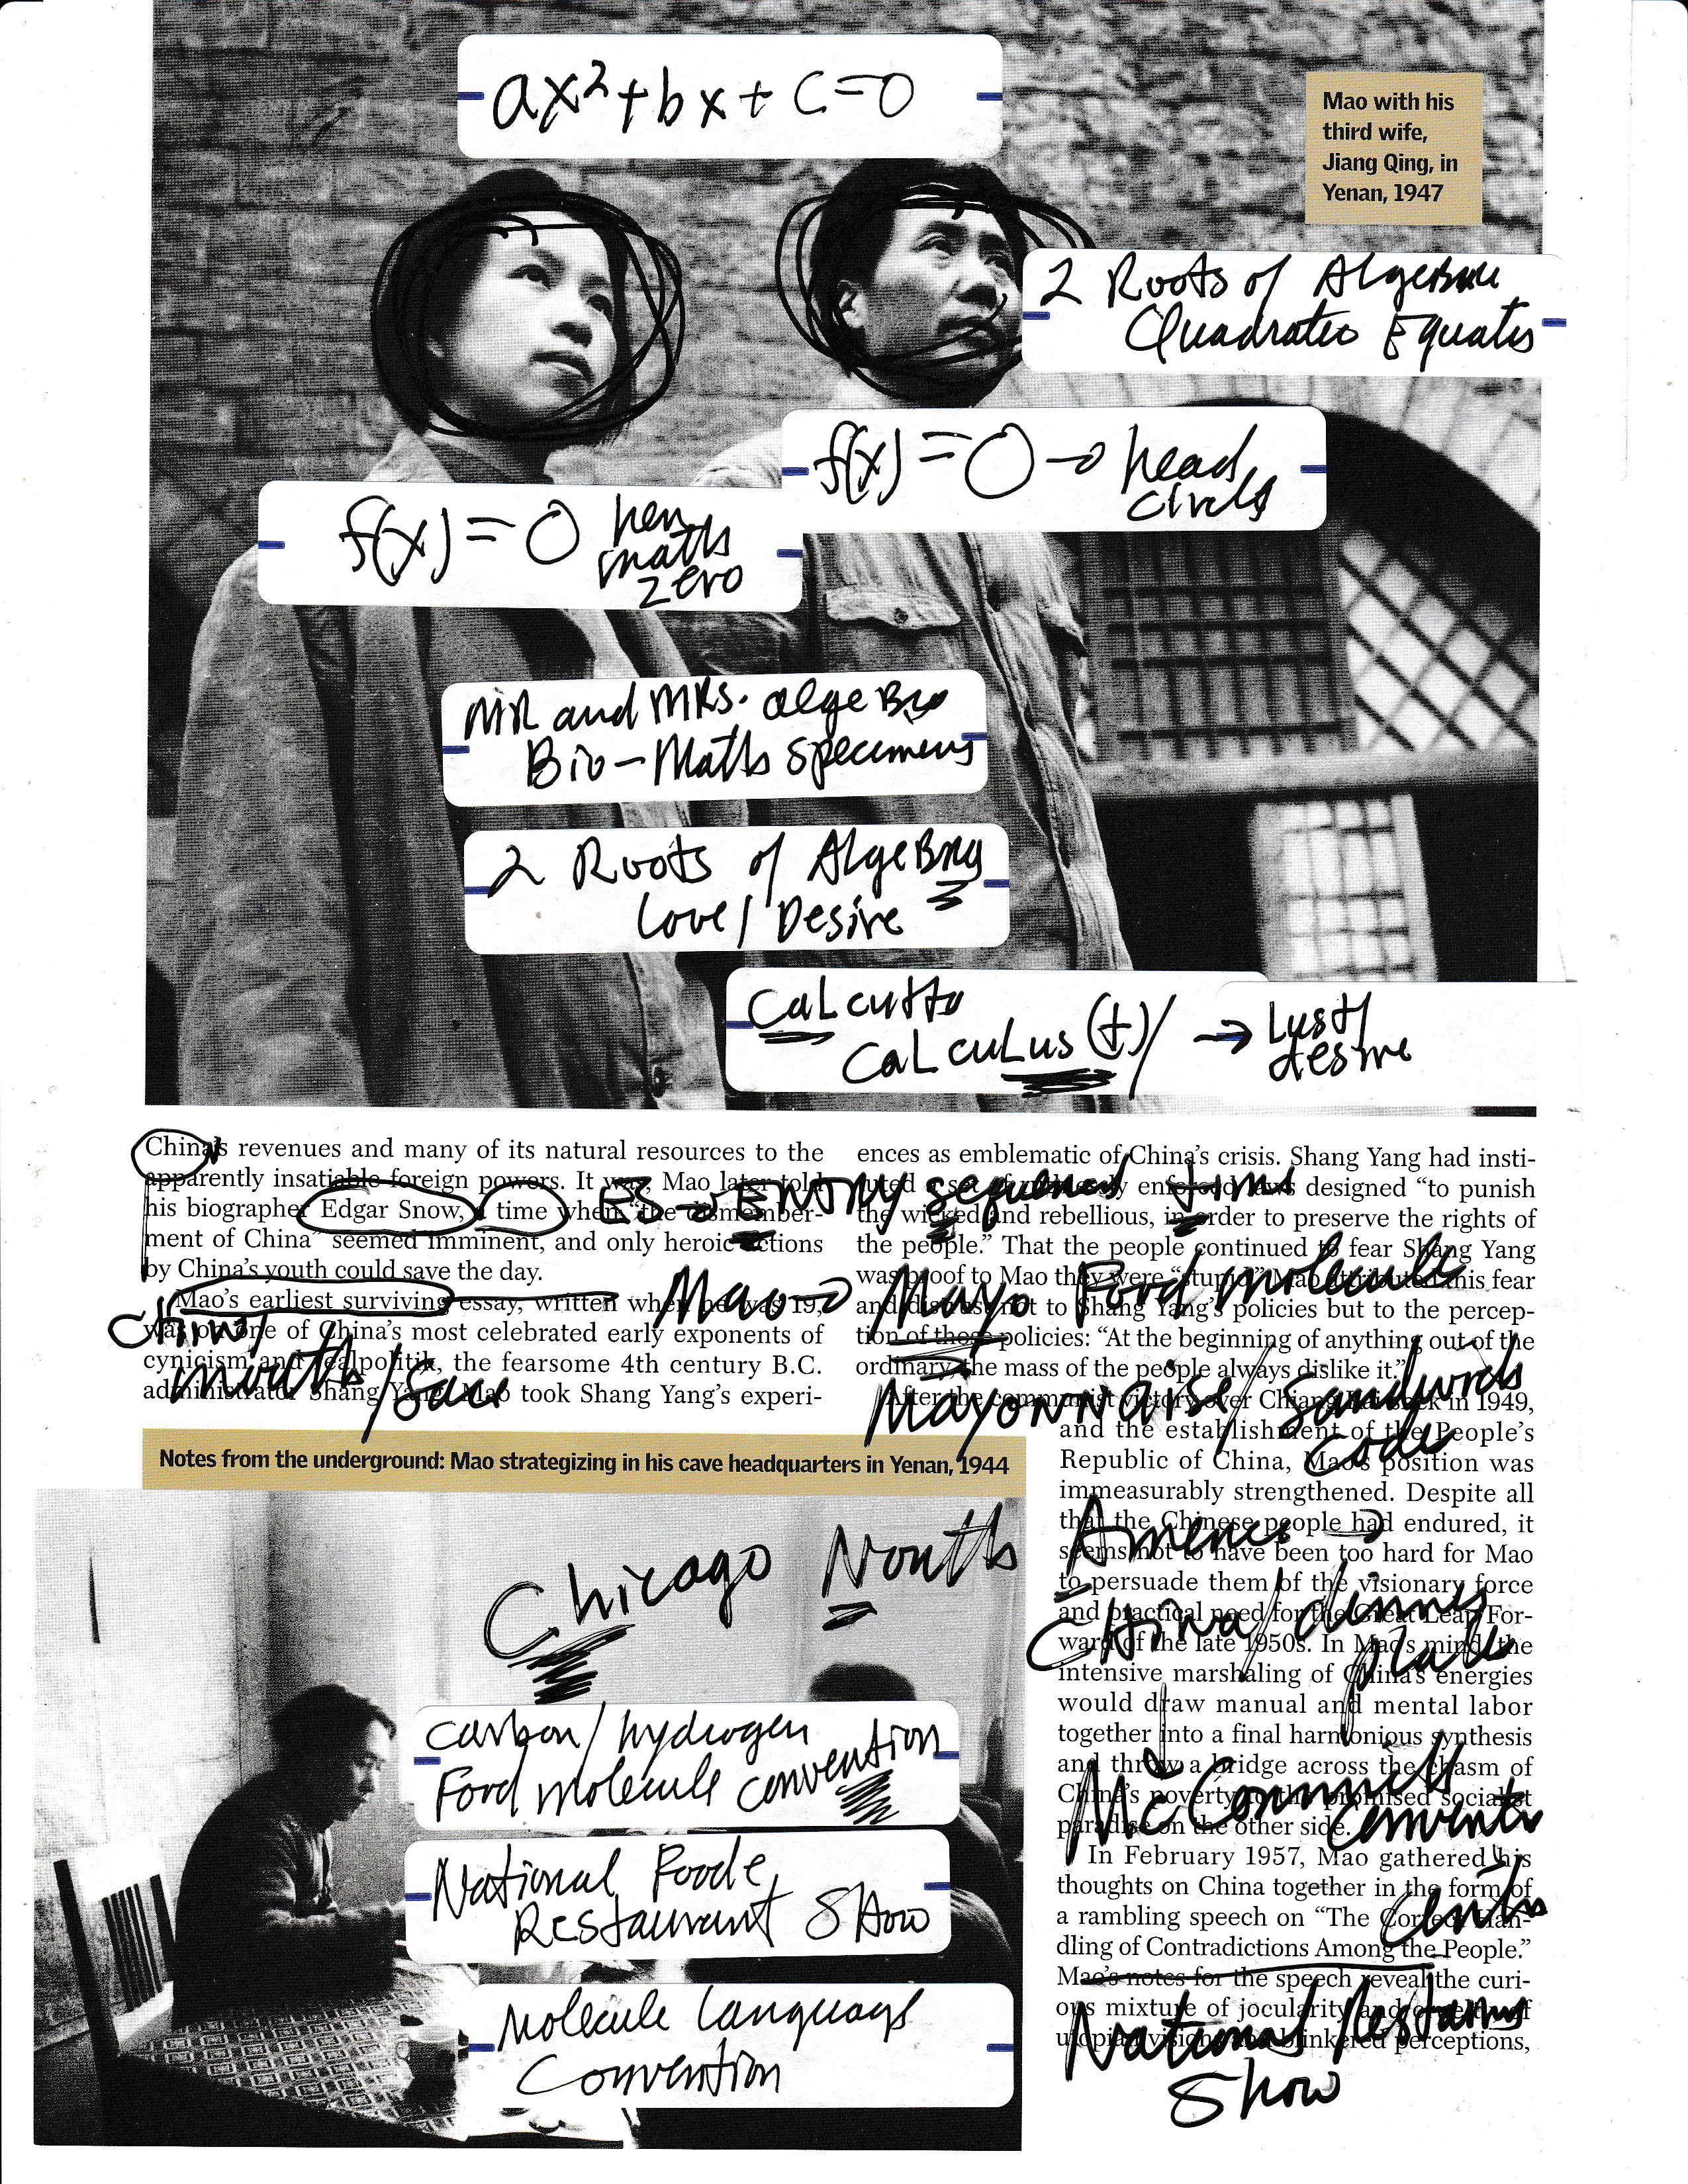 ax²+bx+c=0
Mao with his
third wife,
Jiang Qing, in
Yenan, 1947
2 Roots of
Quadratic
f(x)=0 → head
circls
f(x)=0
maths
zero
MR and MRS.
Bio-Maths specimens
2 Roots of
Love/Desire
Calcutta
CaLcuLus (t)/ → Lust/
desire
China's revenues and many of its natural resources to the
apparently insatiable foreign powers. It was, Mao later told
his biographer Edgar Snow, a time when "the dismember-
ment of China" seemed imminent, and only heroic actions
by China's youth could save the day.
Mao's earliest surviving essay, written when he was 19,
was on one of China's most celebrated early exponents of
cynicism and realpolitik, the fearsome 4th century B.C.
administrator Shang Yang. Mao took Shang Yang's experi-
ES →
Mao → Mayo Food molecule
Mayonnaise/
code
ences as emblematic of China's crisis. Shang Yang had insti-
tuted a set of designed "to punish
the wicked and rebellious, in order to preserve the rights of
the people." That the people continued to fear Shang Yang
was proof to Mao they were "stupid." Mao attributed this fear
and distrust not to Shang Yang's policies but to the percep-
tion of those policies: "At the beginning of anything out of the
ordinary, the mass of the people always dislike it."
After the communist victory over Chiang Kai-shek in 1949,
and the establishment of the People's
Republic of China, Mao's position was
immeasurably strengthened. Despite all
that the Chinese people had endured, it
seems not to have been too hard for Mao
to persuade them of the visionary force
and practical need for the Great Leap For-
ward of the late 1950s. In Mao's mind, the
intensive marshaling of China's energies
would draw manual and mental labor
together into a final harmonious synthesis
and throw a bridge across the chasm of
China's poverty to the promised socialist
paradise on the other side.
In February 1957, Mao gathered his
thoughts on China together in the form of
a rambling speech on "The Correct Han-
dling of Contradictions Among the People."
Mao's notes for the speech reveal the curi-
ous mixture of jocularity and
perceptions,
China/
National
Show
Notes from the underground: Mao strategizing in his cave headquarters in Yenan, 1944
Chicago
Carbon/hydrogen
Food molecule convention
National Foode
Restaurant Show
Molecule Language
Convention